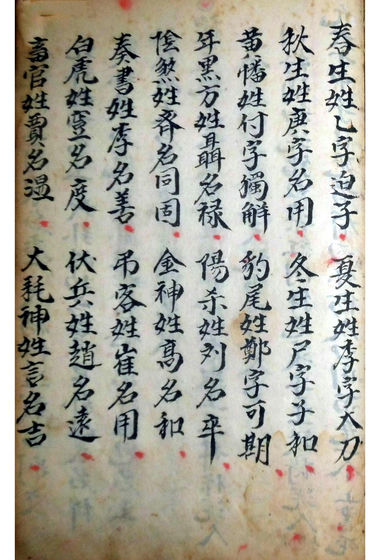 春生姓乙字迫子 夏生姓李字大刀
秋生姓庚字名用 冬生姓尸字子和
黄幡姓付字獨解 豹尾姓鄭字可期
年黒方姓聶名禄 陽杀姓列名卒
陰煞姓齐名同固 金神姓高名和
奏書姓李名善 吊客姓崔名用
白虎姓名度 伏兵姓趙名遠
畜官姓費名温 大耗神姓言名吉